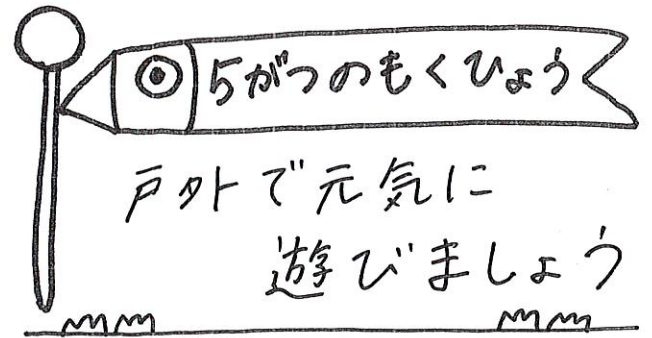 5がつのもくひょう
戸外で元気に
遊びましょう